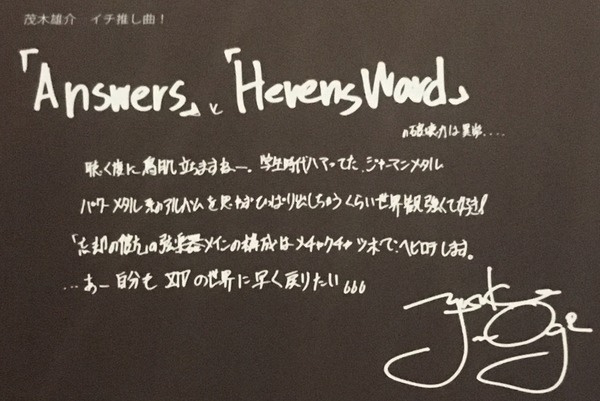 茂木雄介 イチ推し曲！
「Answers」と「HevensWard」
の破壊力は異常....
聴く度に鳥肌立ちますねー。学生時代ハマってた、ジャーマンメタル
パワーメタル系のアルバムを思わずひっぱり出しちゃうくらい世界観強くて好き!
「忘却の彼方」の弦楽器メインの構成はメチャクチャツボで、ヘビロテします。
...あー自分も XIV の世界に早く戻りたい。。。